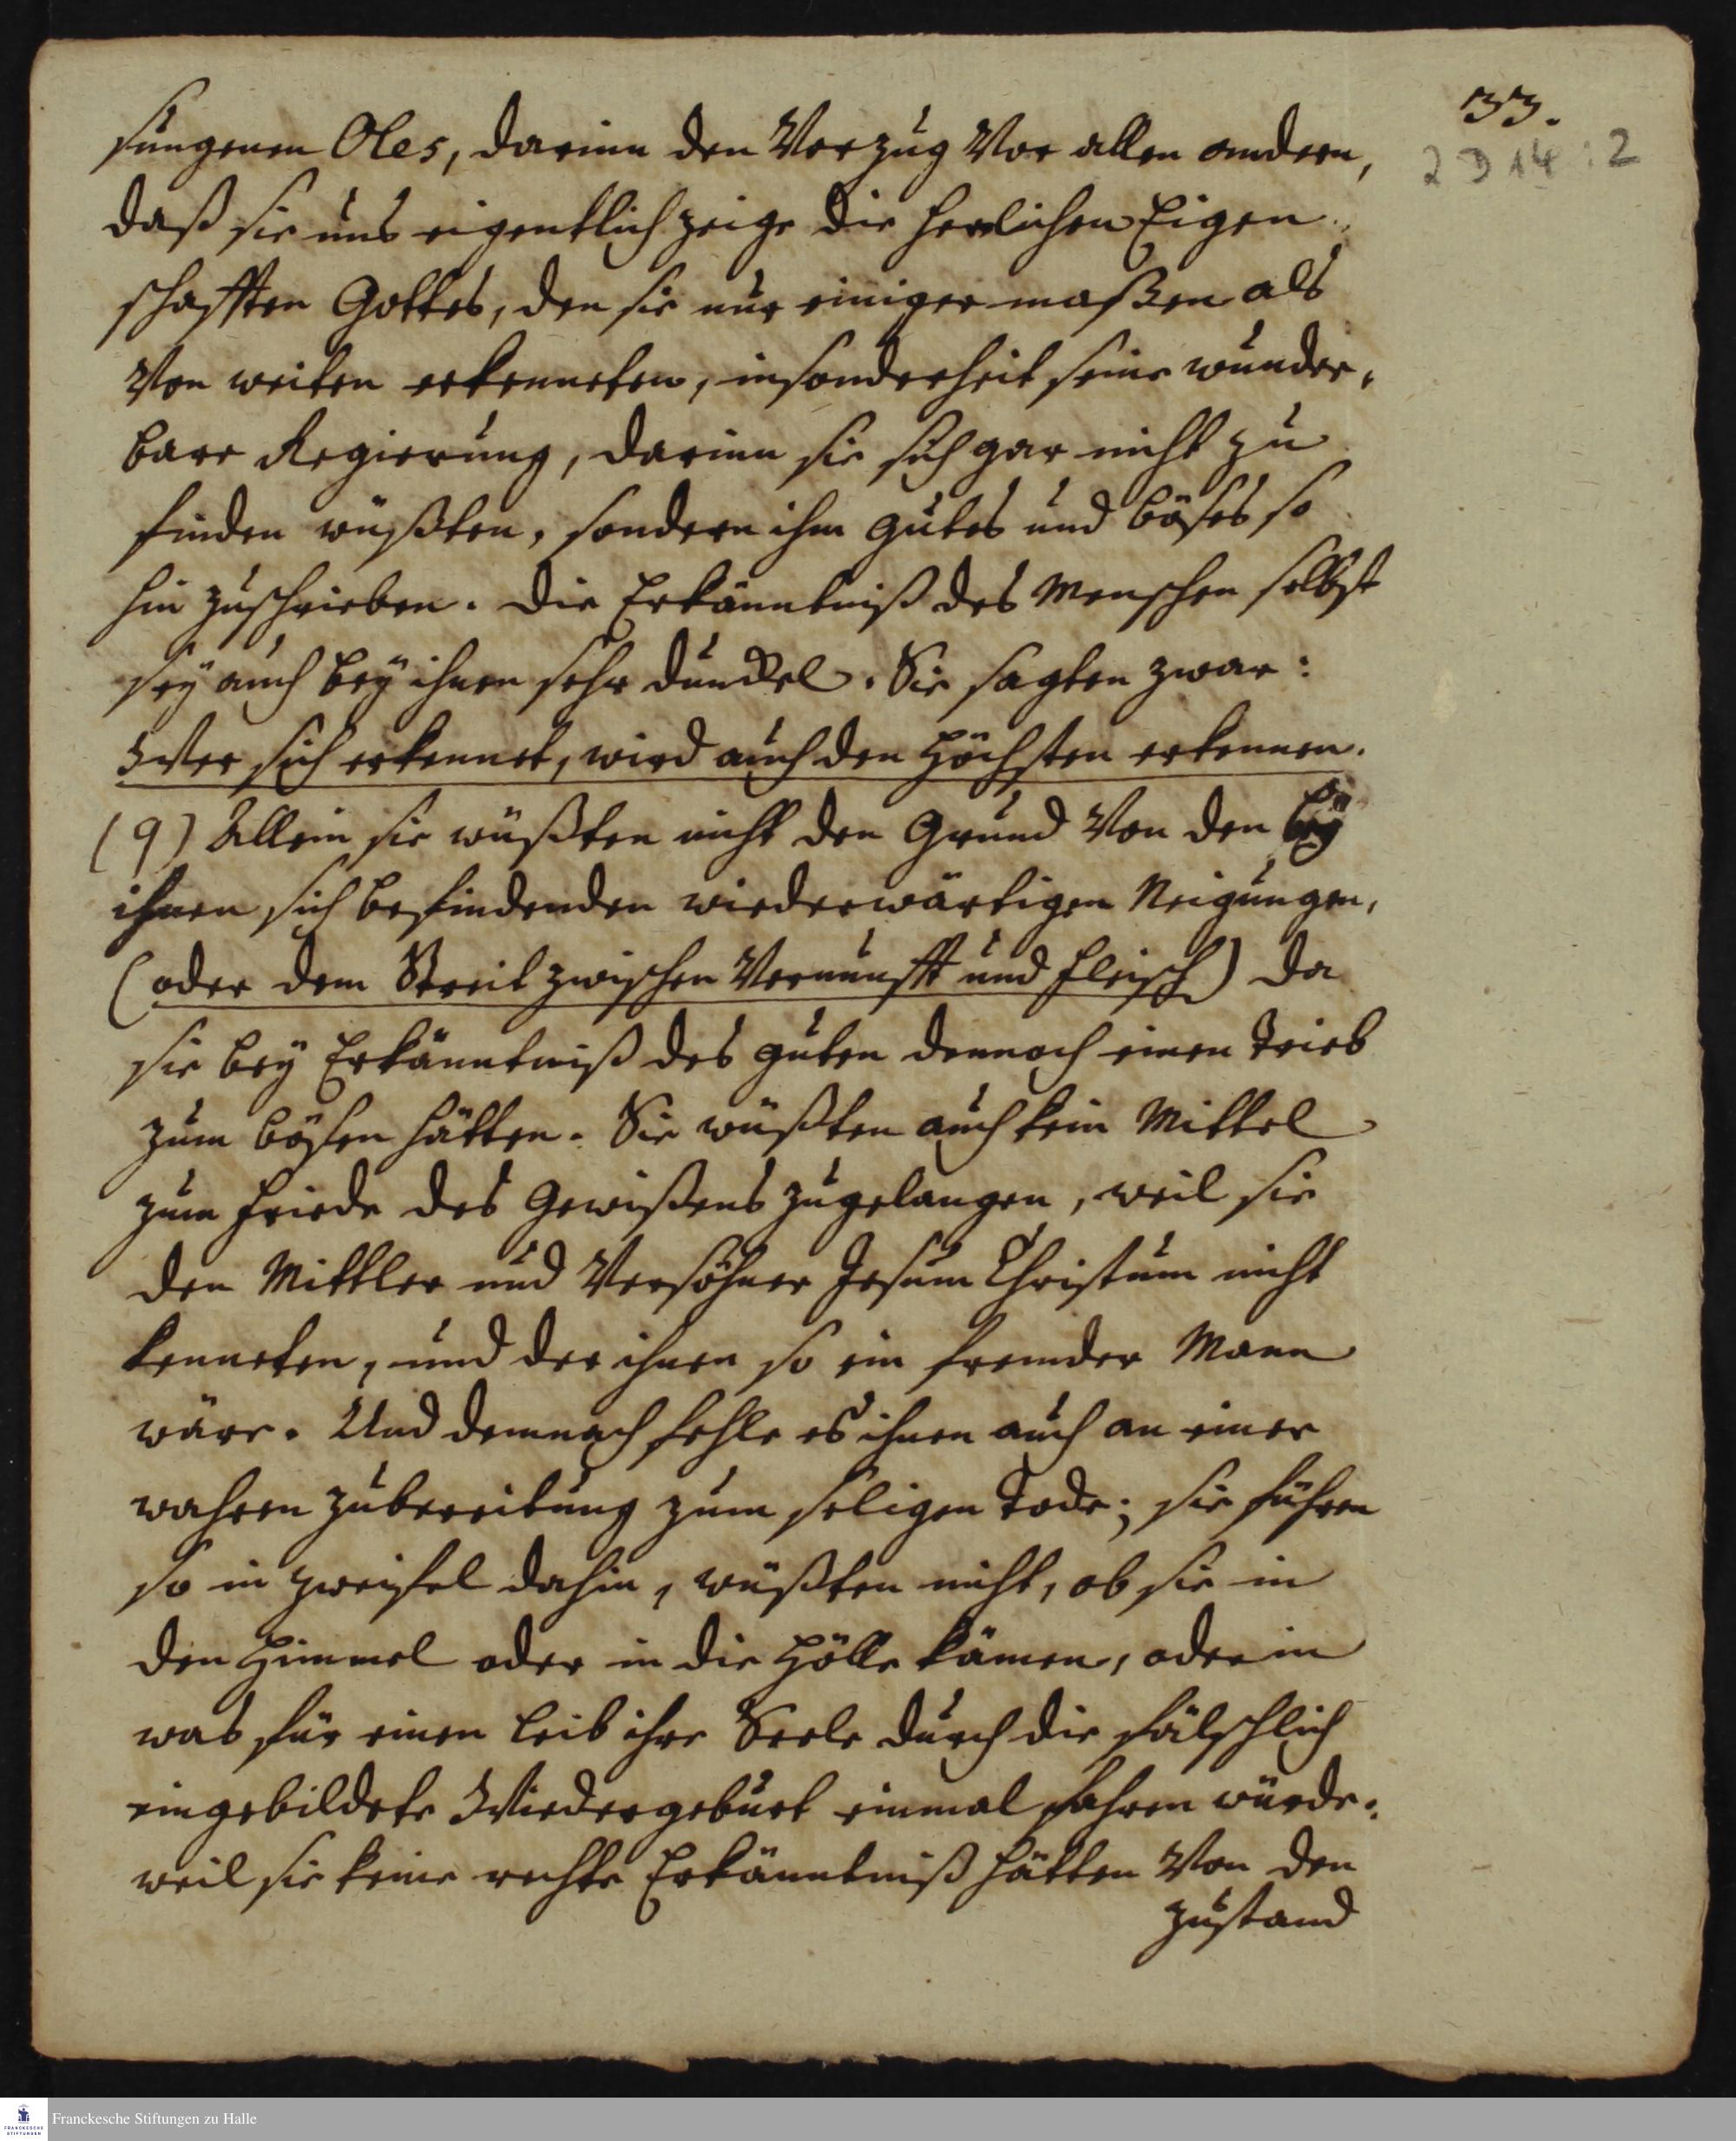 33.
2 D 14 : 2
sungenen Oles, darinn den Vorzug Vor allen andern,
daß sie uns eigentlich zeige die herrlichen Eigen-
schafften Gottes, den sie nur einiger maßen als
Von weiten erkenneten, insonderheit seine wunder-
bare Regierung, darinn sie sich gar nicht zu
finden wüßten, sondern ihm gutes und böses so
hin zuschrieben. Die Erkänntniß des Menschen selbst
sey auch bey ihnen sehr dunckel. Sie sagten zwar:
Wer sich erkennet, wird auch den Höchsten erkennen.
(9) Allein sie wüßten nicht den Grund Von den bey
ihnen sich befindenden wiederwärtigen Neigungen,
(oder dem Streit zwischen Vernunfft und Fleisch) da
sie bey Erkänntniß des guten dennoch einen Trieb
zum bösen hätten. Sie wüßten auch kein Mittel
zum Friede des Gewißens zugelangen, weil sie
den Mittler und Versöhner Jesum Christum nicht
kenneten, und der ihnen so ein fremder Mann
wäre. Und demnach fehle es ihnen auch an einer
wahren zubereitung zum seligen Tode; sie führen
so in zweifel dahin, wüßten nicht, ob sie in
den Himmel oder in die Hölle kämen, oder in
was für einen Leib ihre Seele durch die fälschlich
eingebildete Wiedergeburt einmal fahren würde:
weil sie keine rechte Erkänntniß hätten Von den
zustand
Franckesche Stiftungen zu Halle
FRANCKESCHE
STIFTUNGEN